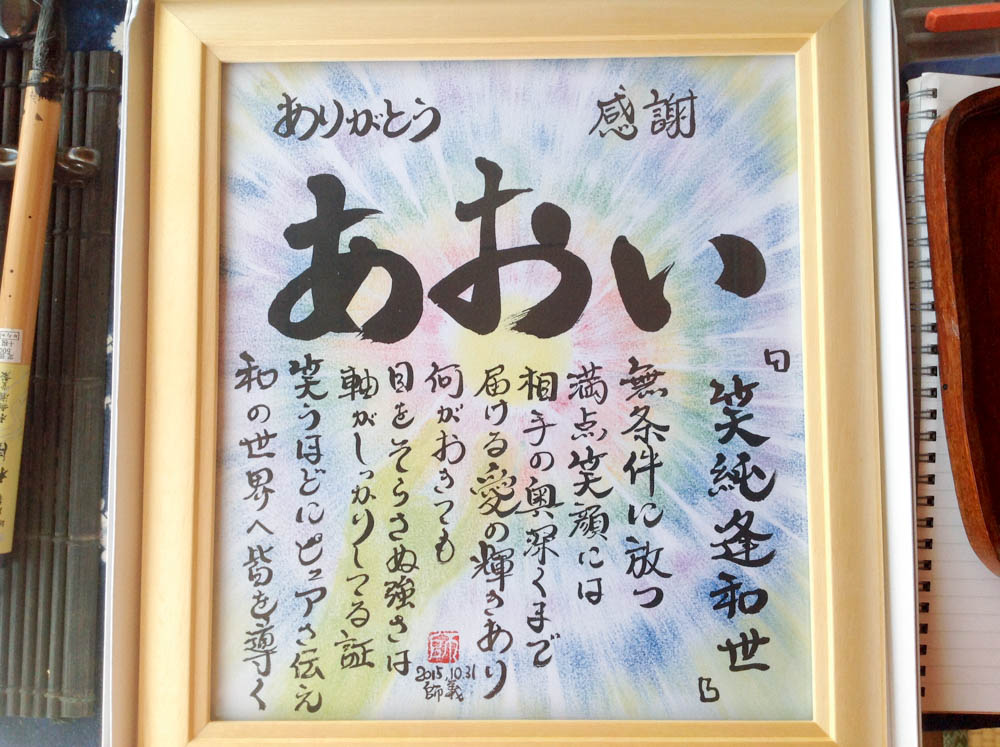 ありがとう
感謝
あおい
「笑純逢和世」
無条件に放つ
満点笑顔には
相手の奥深くまで
届ける愛の輝きあり
何がおきても
目をそらさぬ強さは
軸がしっかりしてる証
笑うほどにピュアさ伝え
和の世界へ皆を導く
2015.10.31
師義